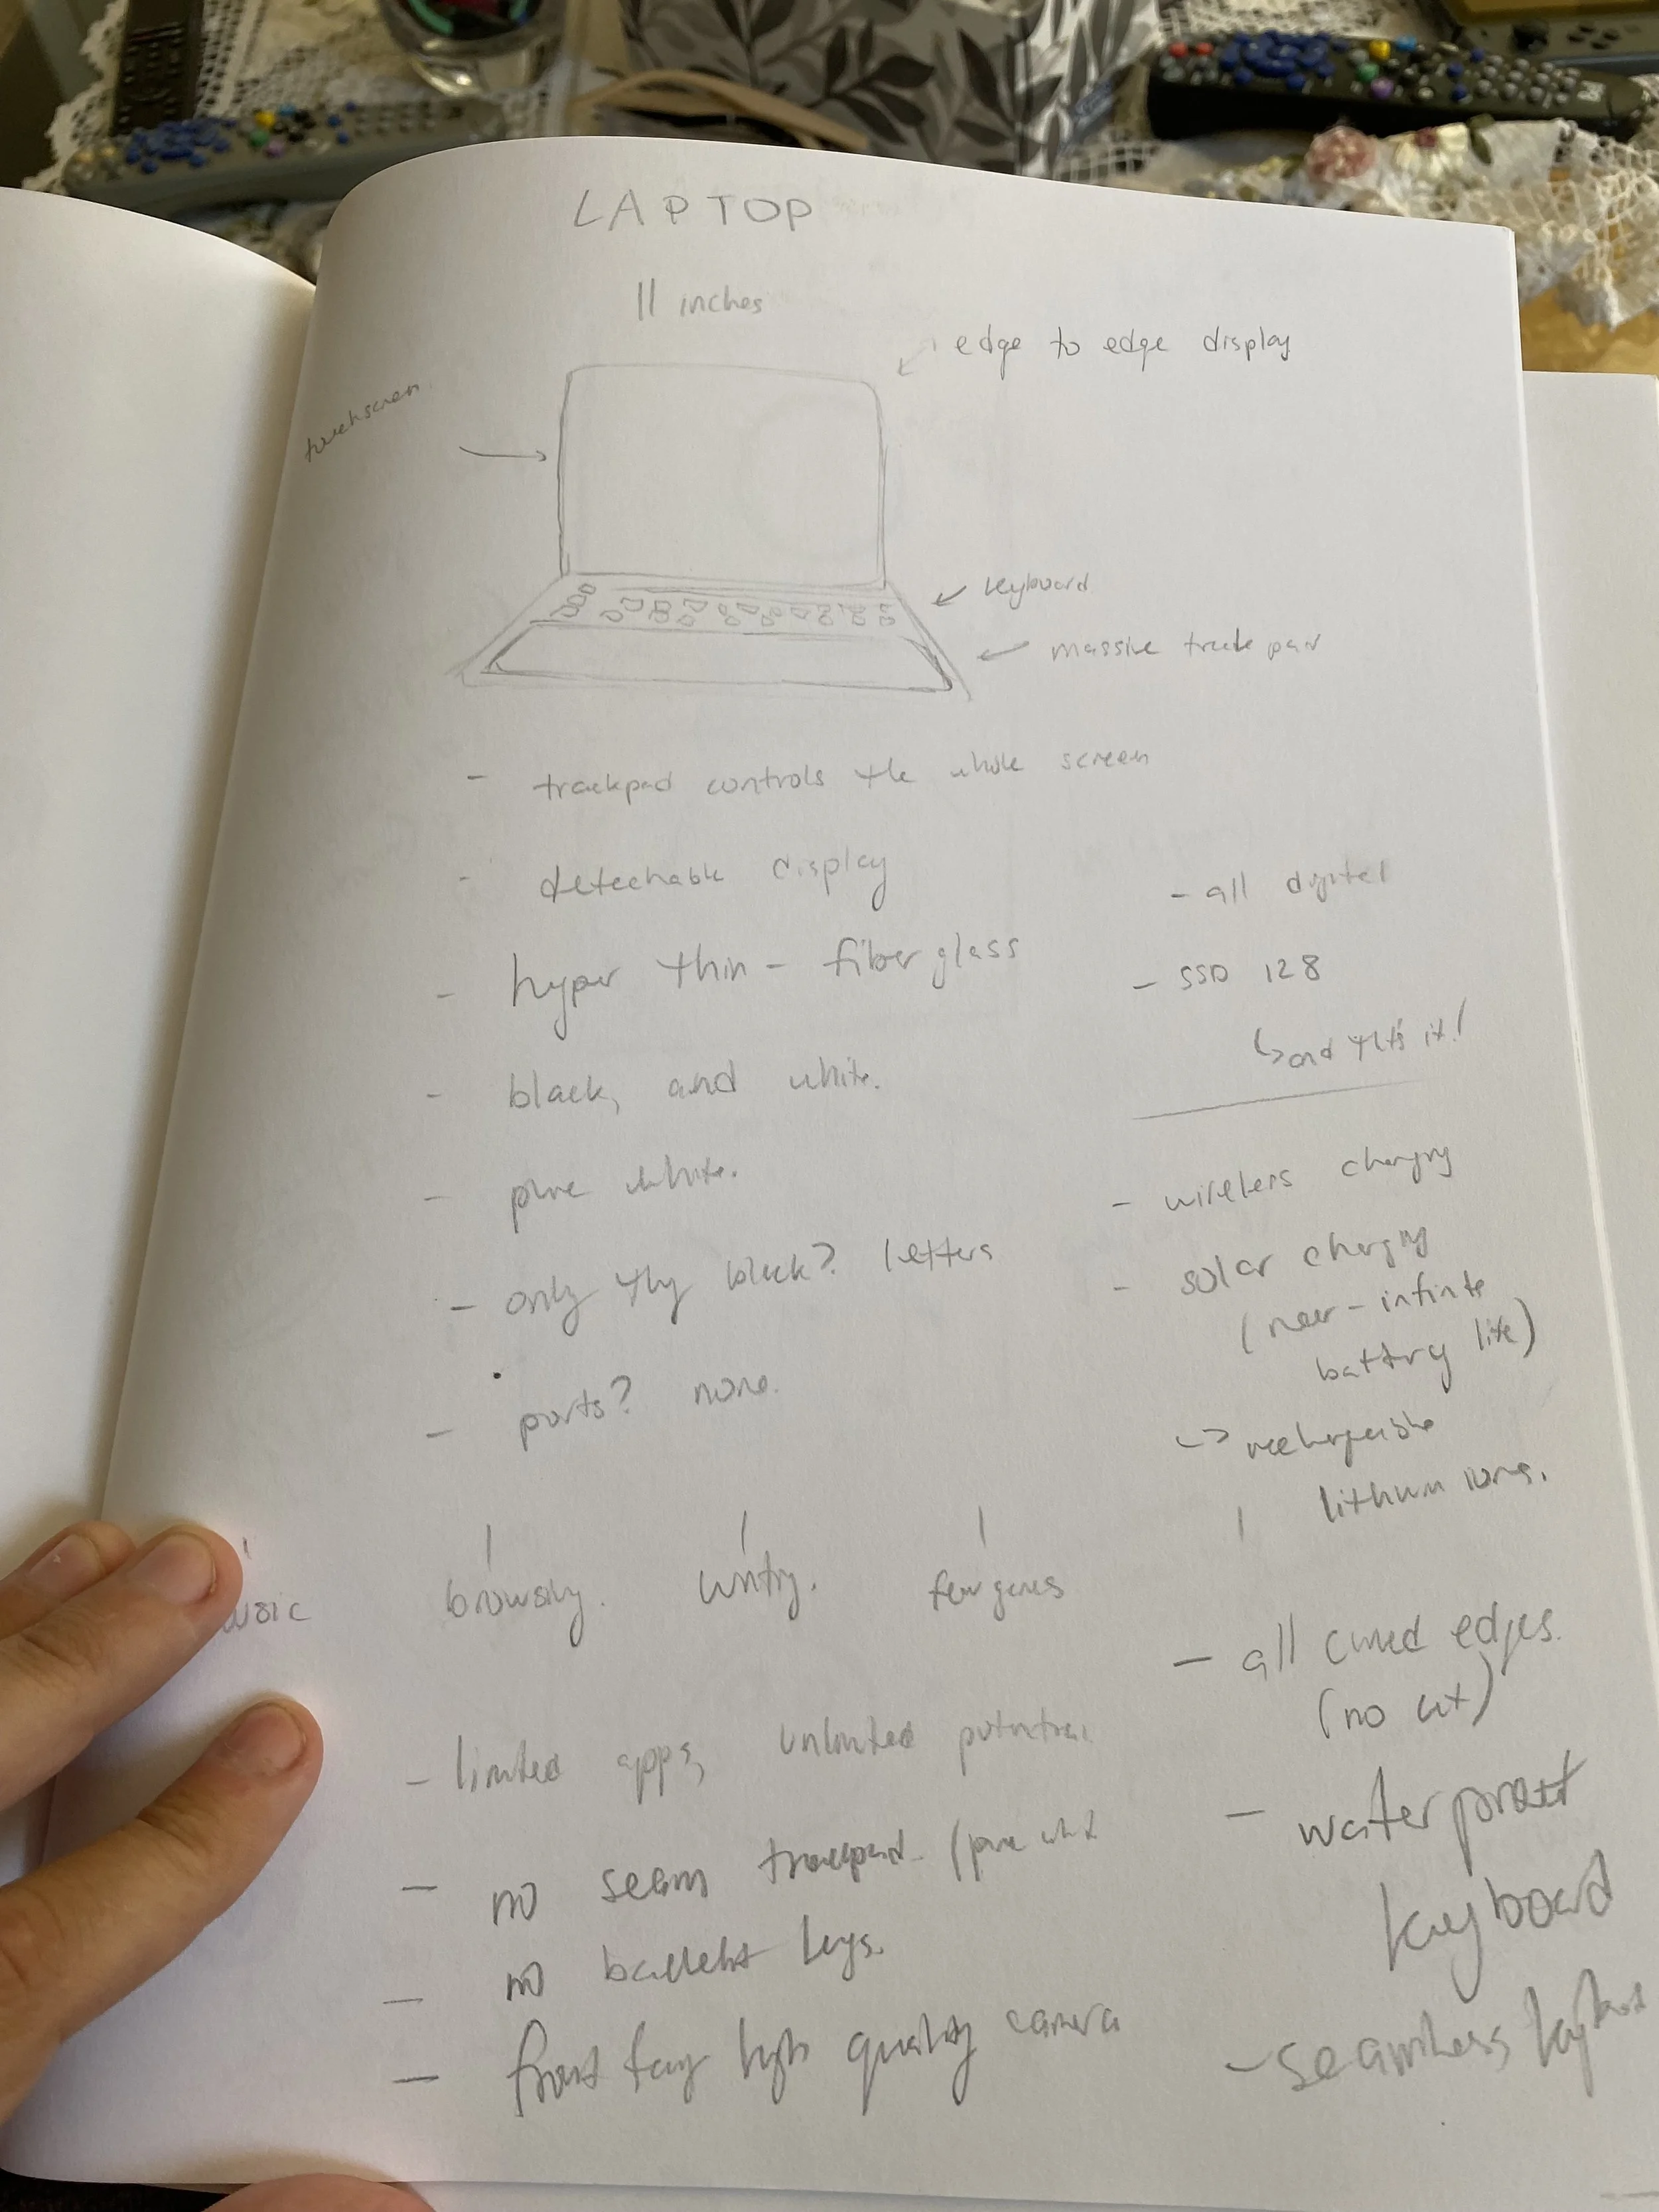 LAPTOP
11 inches
edge to edge display
touchscreen
keyboard
massive trackpad
- trackpad controls the whole screen
- detechable display
- hyper thin - fiberglass
- black, and white.
- pure white.
- only thg black? letters
- ports? none.
- all digital
- SSD 128
↳ and that's it!
- wireless charging
- solar charging
(near-infinite
battery life)
↳ rechargeable
lithium ions.
browsing. writing. few games
- all curved edges.
(no cut)
- limited apps, unlimited potential
- waterproof
keyboard
- no seam trackpad. (pure white
- no backlit keys.
- front facing high quality camera
- seamless keyboard